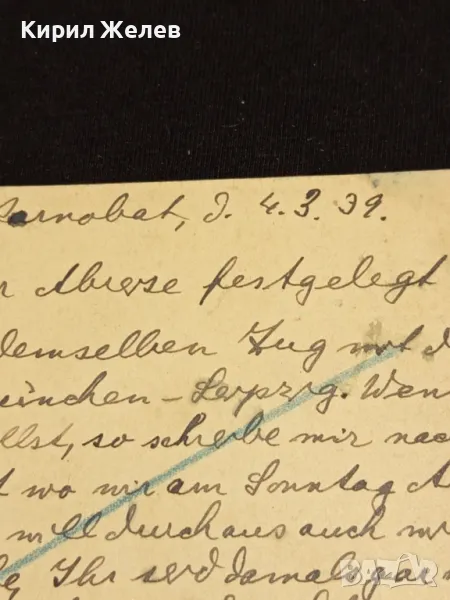 Кирил Желев
Karnobat, d. 4.3.39.
Abreise festgelegt
demselben Zug mit d
ünchen - Leipzig. Wen
llst, so schreibe mir nac
t wo wir am Sonntag A
will durchaus auch
Ihr seid damals gar
BAZAR